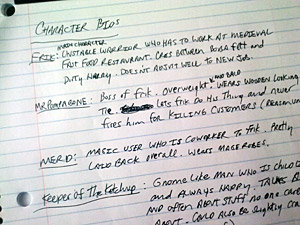 CHARACTER BIOS
MAIN CHARACTER
ERIK: UNSTABLE WARRIOR WHO HAS TO WORK AT MEDIEVAL
FAST FOOD RESTAURANT. CROSS BETWEEN BOBA FETT AND
DIRTY HARRY. DOESN'T ADJUST WELL TO NEW JOB.
AND BALD
MR. : BOSS OF ERIK. OVERWEIGHT, WEARS WOODEN LOOKING
TIE. LETS ERIK DO HIS THING AND NEVER
FIRES HIM FOR KILLING CUSTOMERS
MERD: MAGIC USER WHO IS COWORKER TO ERIK. PRETTY
LAID BACK OVERALL. WEARS MAGE ROBES.
KEEPER OF THE KETCHUP: GNOME LIKE MAN WHO IS CHILD
AND ALWAYS HAPPY. TALKS
AND OFTEN ABOUT STUFF NO ONE
ABOUT. COULD ALSO BE SLIGHTLY